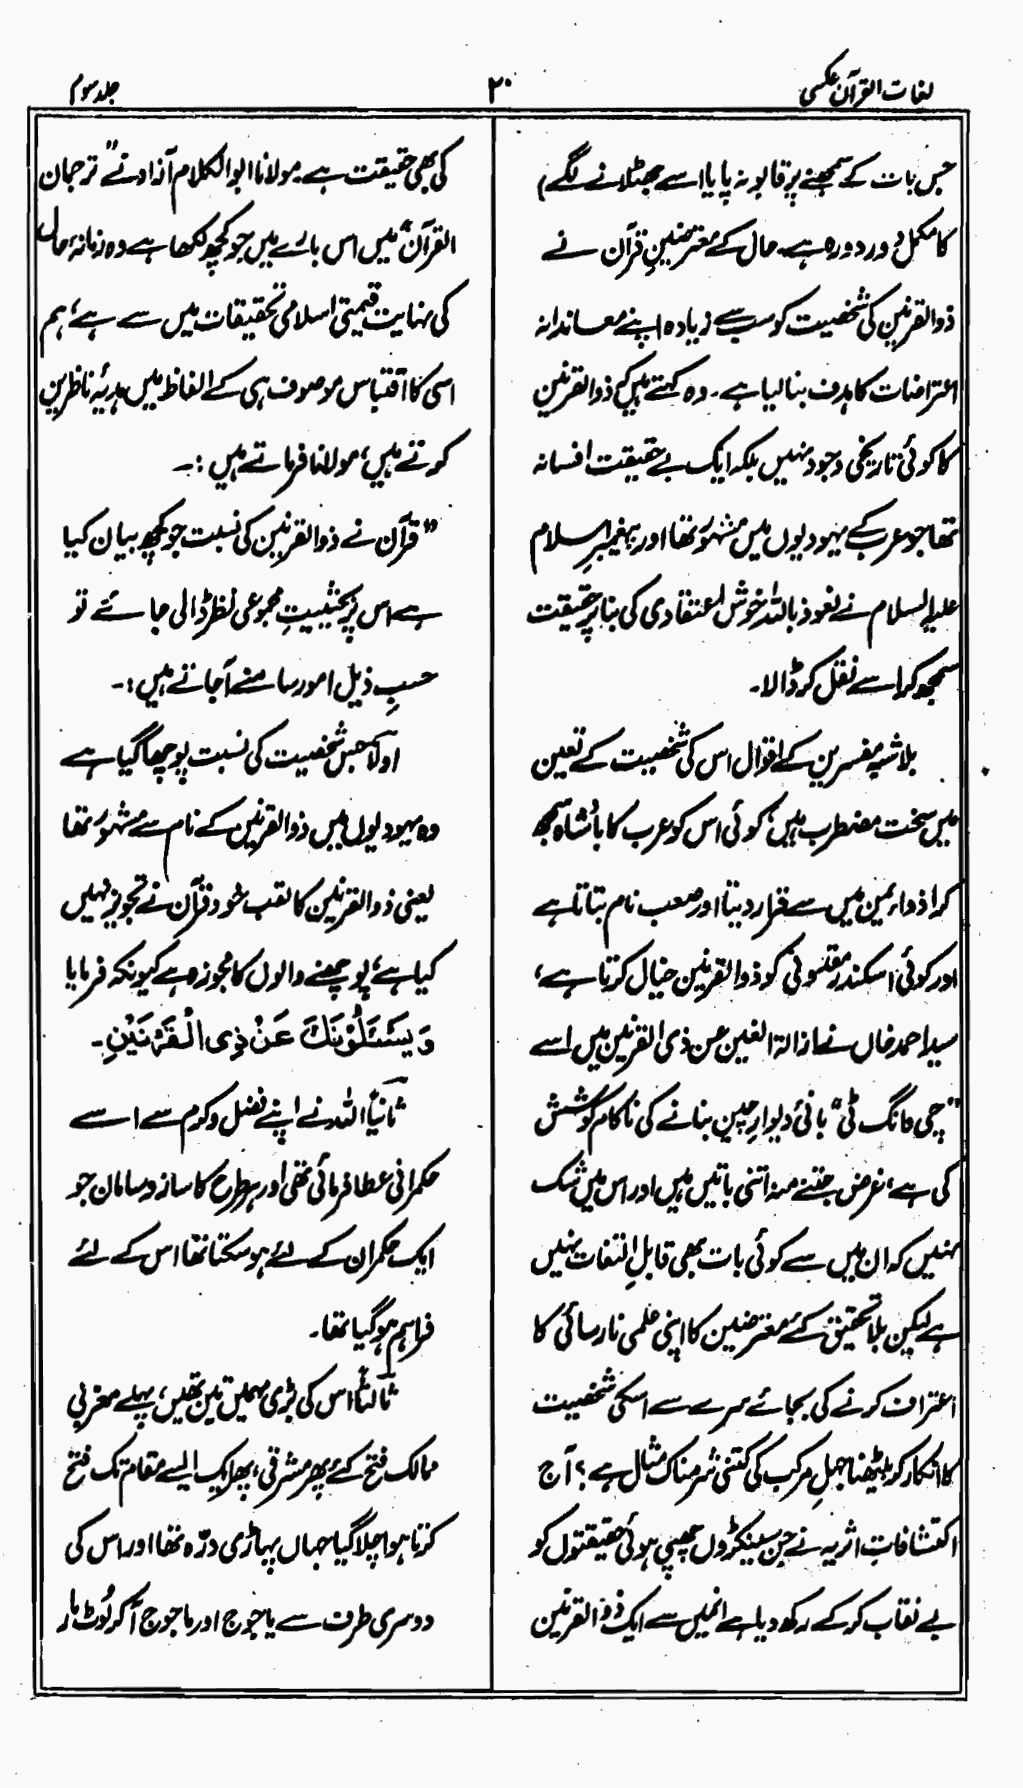 لغات القرآن عکسی
۲۰
جلد سوم
جس بات کے سمجھنے پر قابو نہ پایا اسے جھٹلانے لگے)
کا مکمل دور دورہ ہے۔ حال کے معترضینِ قرآن نے
ذوالقرنین کی شخصیت کو سب سے زیادہ اپنے معاندانہ
اعتراضات کا ہدف بنا لیا ہے۔ وہ کہتے ہیں کہ ذوالقرنین
کا کوئی تاریخی وجود نہیں بلکہ ایک بے حقیقت افسانہ
تھا جو عرب کے یہودیوں میں مشہور تھا اور پیغمبرِ اسلام
علیہ السلام نے نعوذ باللہ خوش اعتقادی کی بنا پر حقیقت
سمجھ کر اسے نقل کر ڈالا۔
بلاشبہ مفسرین کے اقوال اس کی شخصیت کے تعین
میں سخت مضطرب ہیں، کوئی اس کو عرب کا بادشاہ سمجھ
کر اذواء یمن میں سے قرار دیتا اور صعب نام بتاتا ہے
اور کوئی اسکندر مقدونی کو ذوالقرنین خیال کرتا ہے،
سید احمد خاں نے ازالۃ الغین عن ذی القرنین میں اسے
"چی وانگ ٹی" بانیٔ دیوارِ چین بنانے کی ناکام کوشش
کی ہے، غرض جتنے منہ اتنی باتیں ہیں اور اس میں شک
نہیں کہ ان میں سے کوئی بات بھی قابلِ التفات نہیں
ہے لیکن بلا تحقیق کئے معترضین کا اپنی علمی نارسائی کا
اعتراف کرنے کی بجائے سرے سے اسکی شخصیت
کا انکار کر بیٹھنا جہلِ مرکب کی کتنی شرمناک مثال ہے؟ آج
اکتشافاتِ اثریہ نے جن سینکڑوں چھپی ہوئی حقیقتوں کو
بے نقاب کر کے رکھ دیا ہے انہیں سے ایک ذوالقرنین
کی بھی حقیقت ہے۔ مولانا ابوالکلام آزاد نے "ترجمان
القرآن" میں اس بارے میں جو کچھ لکھا ہے وہ زمانۂ حال
کی نہایت قیمتی اسلامی تحقیقات میں سے ہے، ہم
اسی کا اقتباس موصوف ہی کے الفاظ میں ہدیۂ ناظرین
کرتے ہیں، مولانا فرماتے ہیں :۔
"قرآن نے ذوالقرنین کی نسبت جو کچھ بیان کیا
ہے اس پر بحیثیتِ مجموعی نظر ڈالی جائے تو
حسبِ ذیل امور سامنے آجاتے ہیں :۔
اولاً جس شخصیت کی نسبت پوچھا گیا ہے
وہ یہودیوں میں ذوالقرنین کے نام سے مشہور تھا
یعنی ذوالقرنین کا لقب خود قرآن نے تجویز نہیں
کیا ہے، پوچھنے والوں کا مجوزہ ہے کیونکہ فرمایا
وَيَسْـَٔلُوْنَكَ عَنْ ذِی الْقَرْنَيْنِ۔
ثانیاً اللہ نے اپنے فضل و کرم سے اسے
حکمرانی عطا فرمائی تھی اور ہر طرح کا ساز و سامان جو
ایک حکمران کے لئے ہو سکتا تھا اس کے لئے
فراہم ہو گیا تھا۔
ثالثاً اس کی بڑی مہمیں تین تھیں، پہلے مغربی
ممالک فتح کئے پھر مشرقی، پھر ایک ایسے مقام تک فتح
کرتا ہوا چلا گیا جہاں پہاڑی درّہ تھا اور اس کی
دوسری طرف سے یاجوج اور ماجوج آکر لوٹ مار